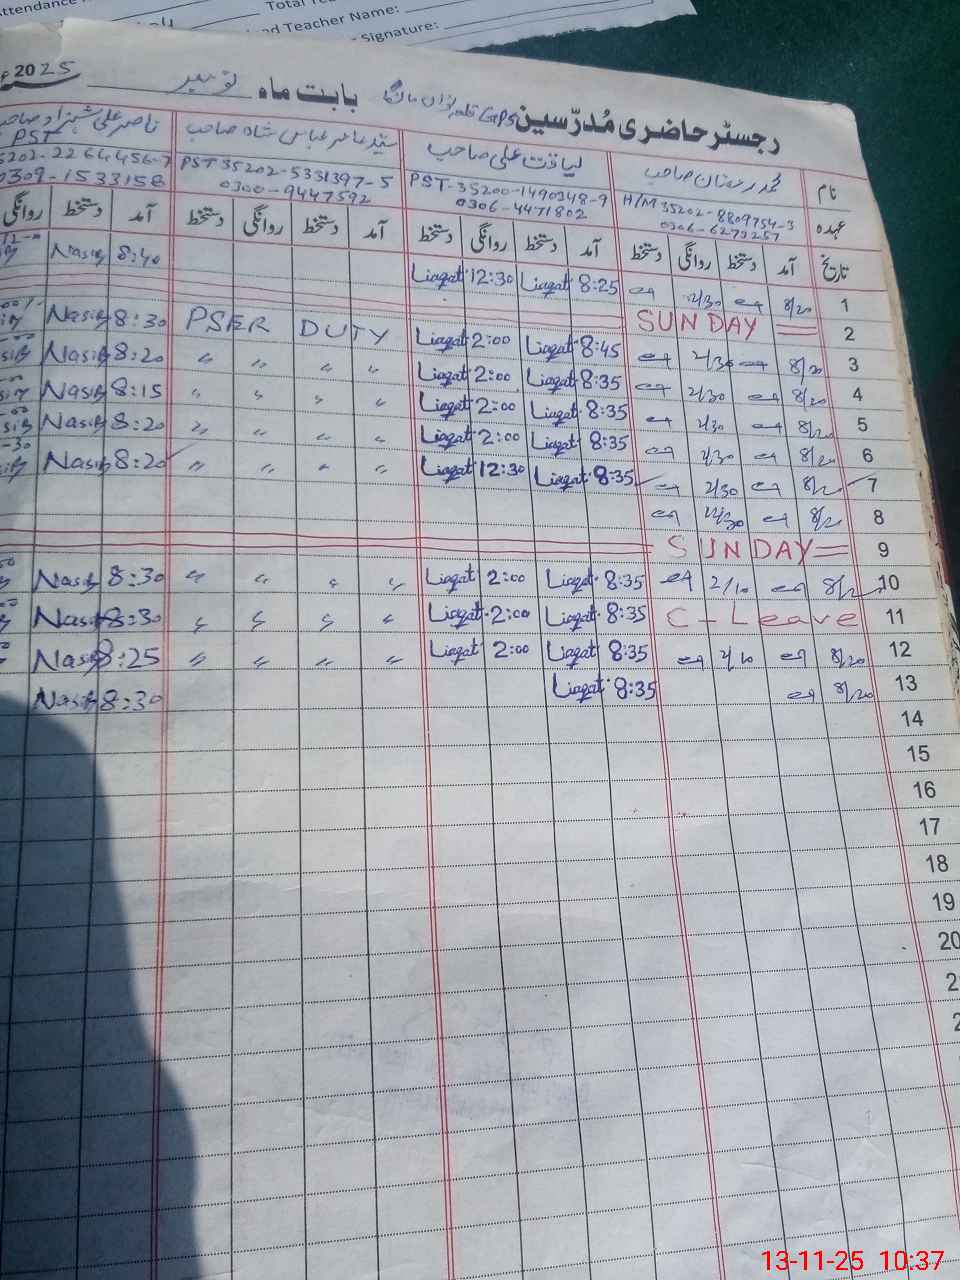 Attendance
Total Te
Head Teacher Name:
Signature:
رجسٹر حاضری مُدرّسین GPS قلعہ نواں مانگا بابت ماہ نومبر 2025ء
نام محمد رمضان صاحب لیاقت علی صاحب سیّد عامر عباس شاہ صاحب ناصر علی شہزاد صاحب
عہدہ H/M 35202-8809754-3 PST-35200-1490348-9 PST 35202-5331397-5 PST 35202-2264456-7
0306-6273257 0306-4471802 0300-9447592 0309-1533158
تاریخ آمد دستخط روانگی دستخط آمد دستخط روانگی دستخط آمد دستخط روانگی دستخط آمد دستخط روانگی
1 8/20 2/30 8:25 Liaqat 12:30 Liaqat 8:40 Nasir
2 SUNDAY
3 8/20 2/30 8:45 Liaqat 2:00 Liaqat PSER DUTY 8:30 Nasir
4 8/20 2/30 8:35 Liaqat 2:00 Liaqat " " " " 8:20 Nasir
5 8/20 2/30 8:35 Liaqat 2:00 Liaqat " " " " 8:15 Nasir
6 8/20 2/30 8:35 Liaqat 2:00 Liaqat " " " " 8:20 Nasir
7 2/30 8:35 Liaqat 12:30 Liaqat " " " " 8:20 Nasir
8 8/20 12/30
9 SUNDAY
10 2/10 8:35 Liaqat 2:00 Liaqat " " " " 8:30 Nasir
11 C-Leave 8:35 Liaqat 2:00 Liaqat " " " " 8:30 Nasir
12 8/20 2/10 8:35 Liaqat 2:00 Liaqat " " " " 8:25 Nasir
13 8/20 8:35 Liaqat 8:30 Nasir
14
15
16
17
18
19
20
13-11-25 10:37